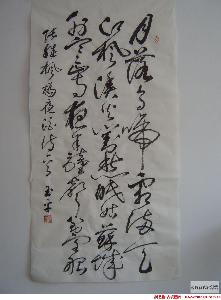 月落烏啼霜滿天
江楓漁火對愁眠姑蘇城
外寒山寺夜半鐘聲到客船
張継楓橋夜泊诗